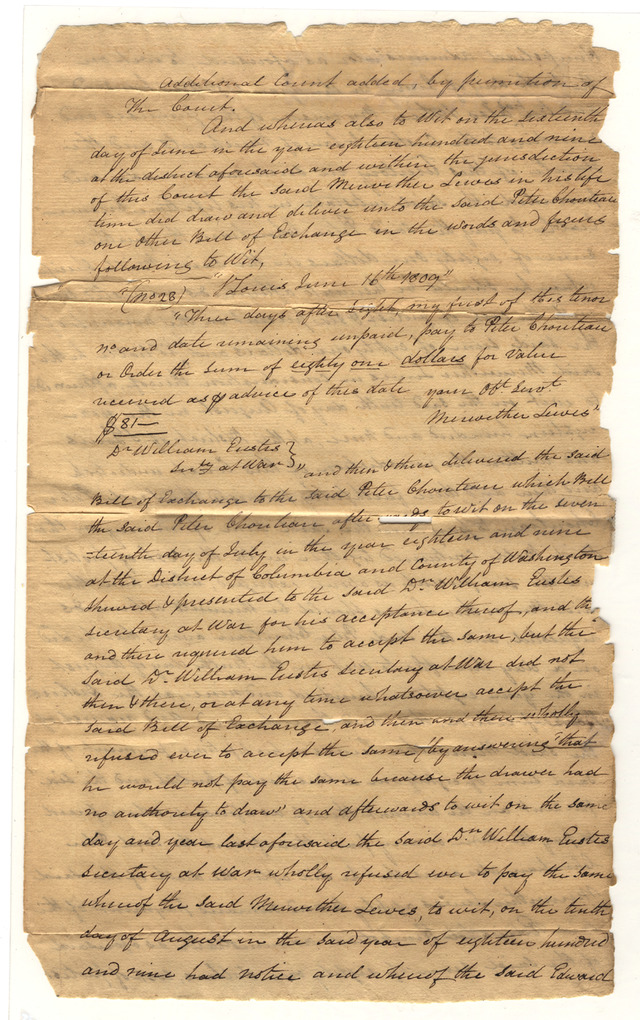 Additional Count added, by permition of
The Court.
And whereas also to Wit on the Sixteenth
day of June in the year eighteen hundred and nine
at the district aforesaid and within the jurisdiction
of this Court the said Meriwether Lewis in his life
time did draw and deliver unto the said Peter Chouteau
one other Bill of Exchange in the words and figures
following to Wit,
(no 28) "St Louis June 16th 1809"
"Three days after Sight, my first of this tenor
no and date remaining unpaid, pay to Peter Chouteau
or Order the sum of eighty one dollars for value
received as advice of this date your Obt Servt
"$81— Meriwether Lewis"
Dr William Eustis
Secrty at War } "and then & there delivered the said
Bill of Exchange to the said Peter Chouteau which Bill
the said Peter Chouteau after to wit on the seven
=teenth day of July in the year eighteen and nine
at the District of Columbia and County of Washington
shewed & presented to the said Dr William Eustis
secretary at War for his acceptance thereof, and then
and there required him to accept the same, but the
said Dr William Eustis secretary at War did not
then & there, or at any time whatsoever accept the
said Bill of Exchange, and then and there wholly
refused ever to accept the same (by answering "that
he would not pay the same because the drawer had
no authority to draw" and afterwards to wit on the same
day and year last aforesaid the said Dr William Eustis
secretary at War wholly refused ever to pay the same
whereof the said Meriwether Lewis, to wit, on the tenth
day of August in the said year of eighteen hundred
and nine had notice and whereof the said Edward